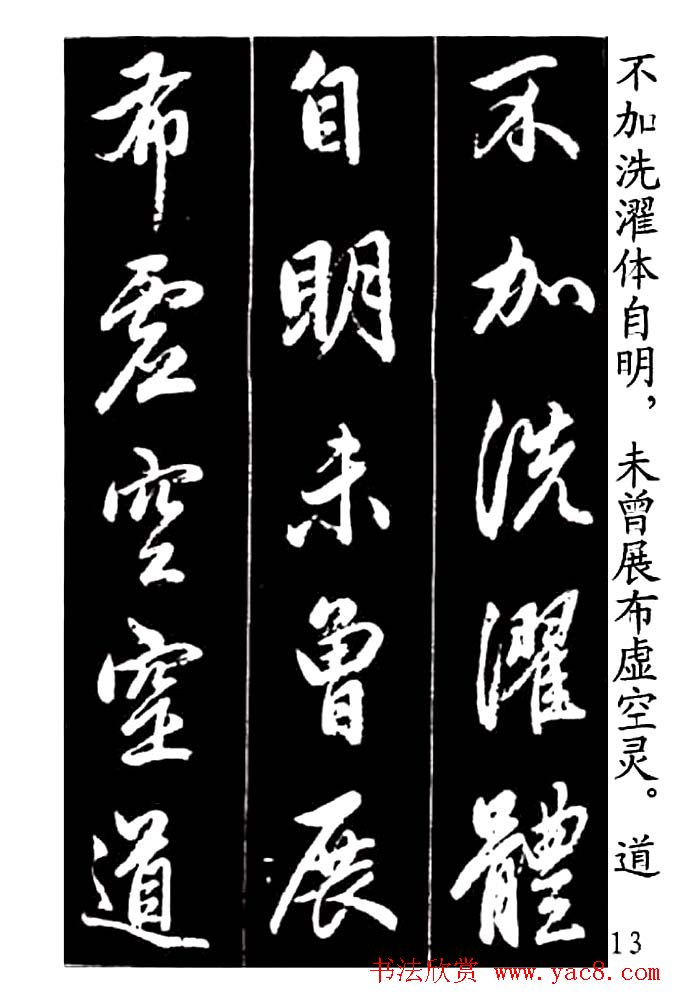 不加洗濯体自明，未曾展布虚空灵。 道
不加洗濯體
自明未曾展
布虛空道
13
书法欣赏 www.yac8.com